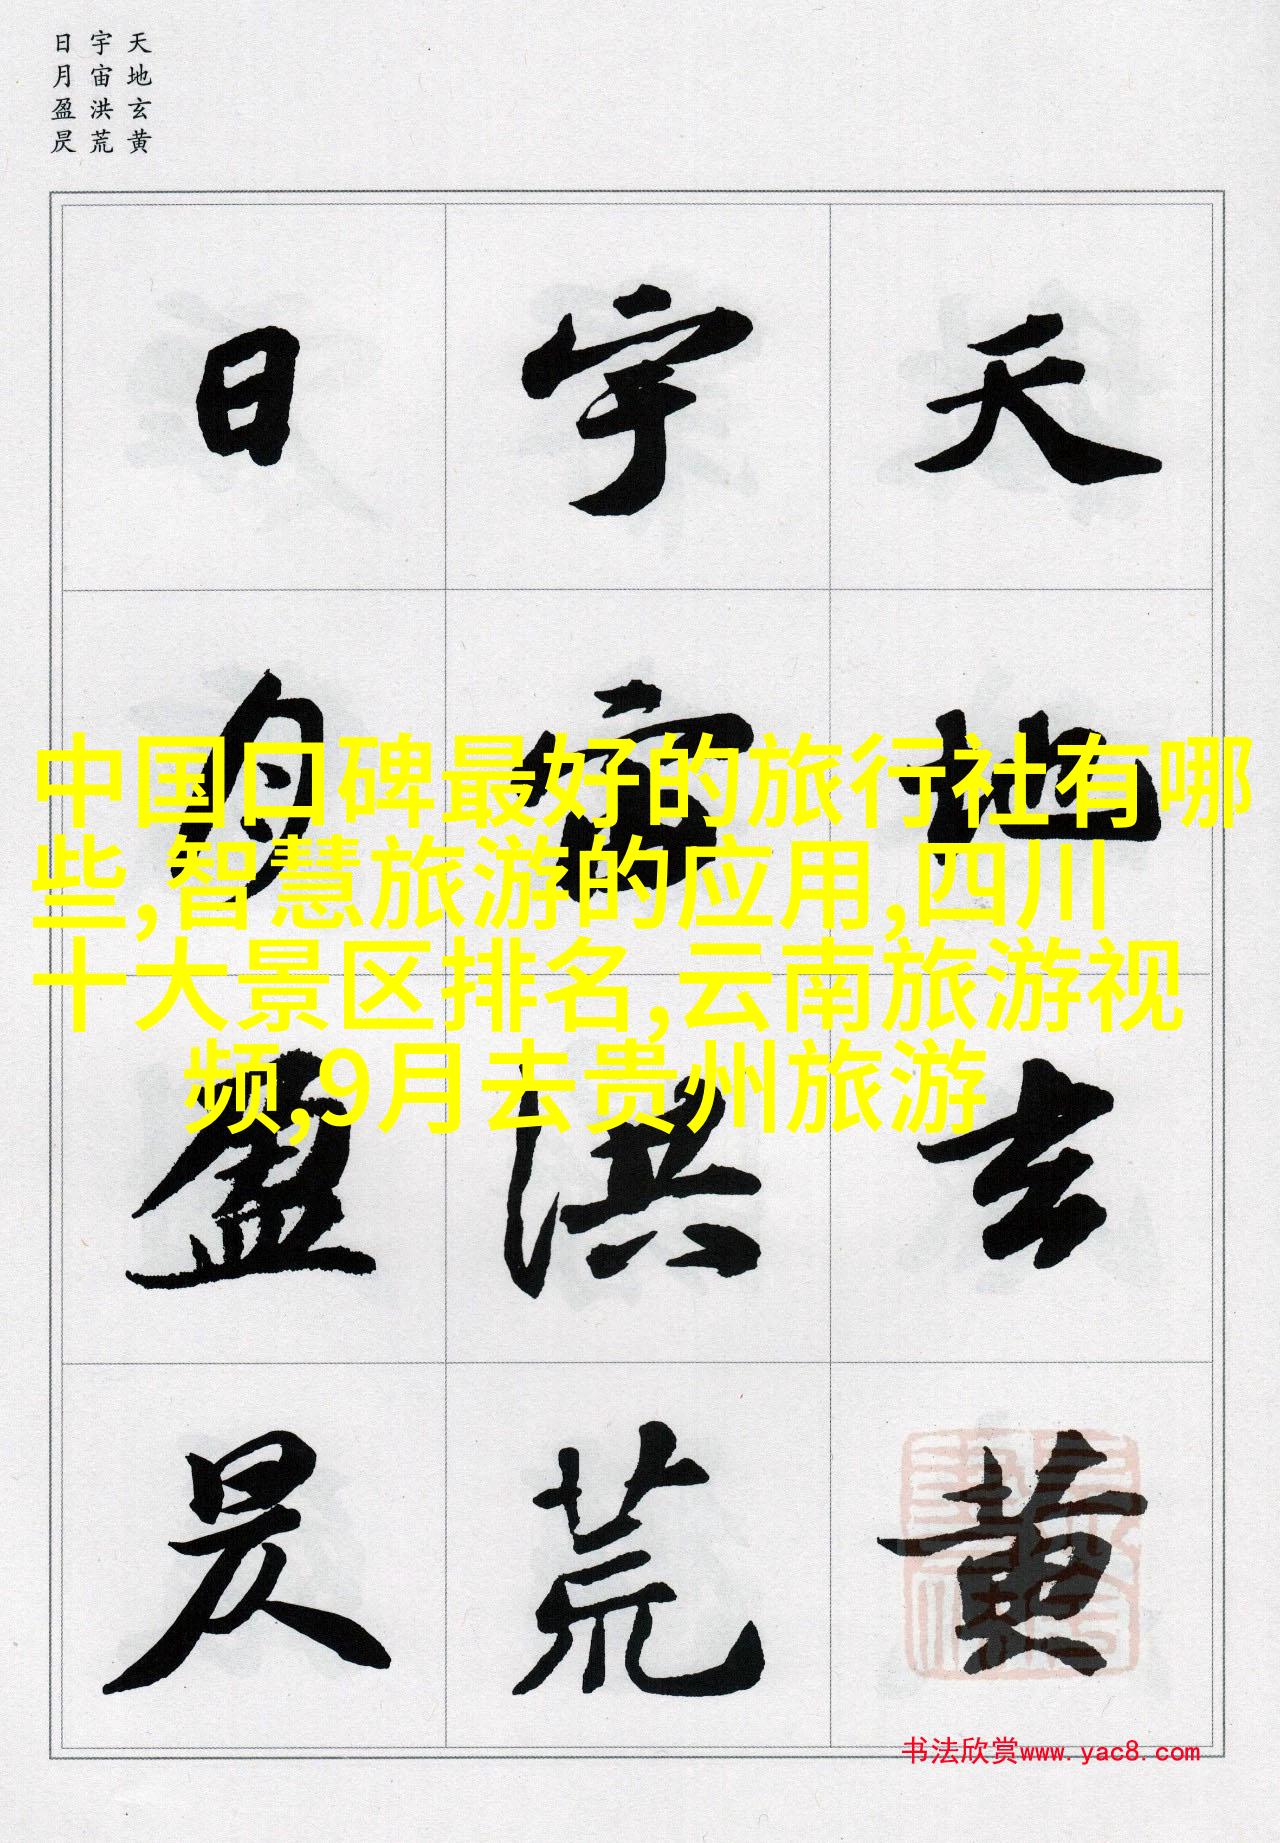 天地玄黄
宇宙洪荒
日月盈昃
天地玄黄
宇宙洪荒
日月盈昃
中国口碑最好的旅行社有哪
些,智慧旅游的应用,四川
十大景区排名,云南旅游视
频,9月去贵州旅游
书法欣赏www.yac8.com